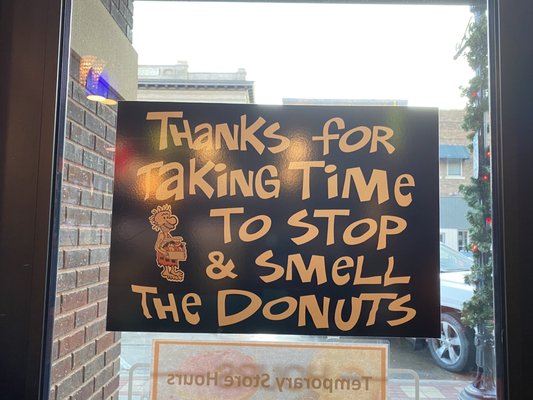 THANKS FOR
TAKING TIME
TO STOP
& SMELL
THE DONUTS
Temporary Store Hours